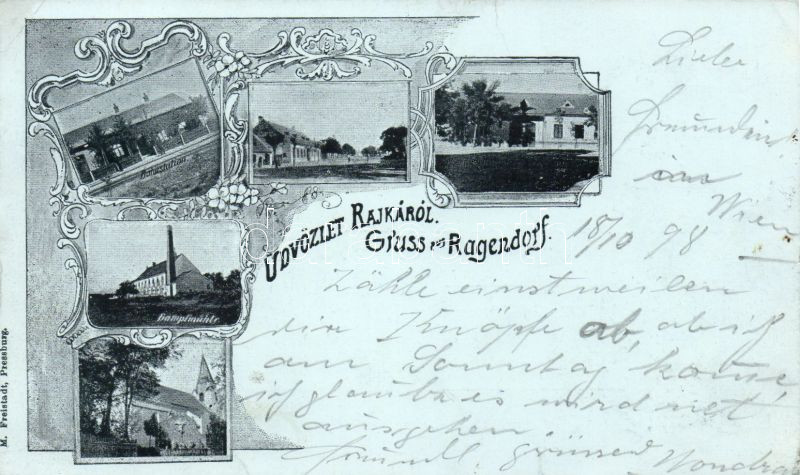 Bahnstation
ÜDVÖZLET RAJKÁRÓL.
Gruss aus Ragendorf.
Dampfmühle.
M. Freistadt, Pressburg.
Liebe
Freundin
in
Wien
18/10 98
Zähle einstweilen
die Knöpfe ab, ob ich
am Sonntag komme
ich glaube es wird net
ausgehen.
grüssend